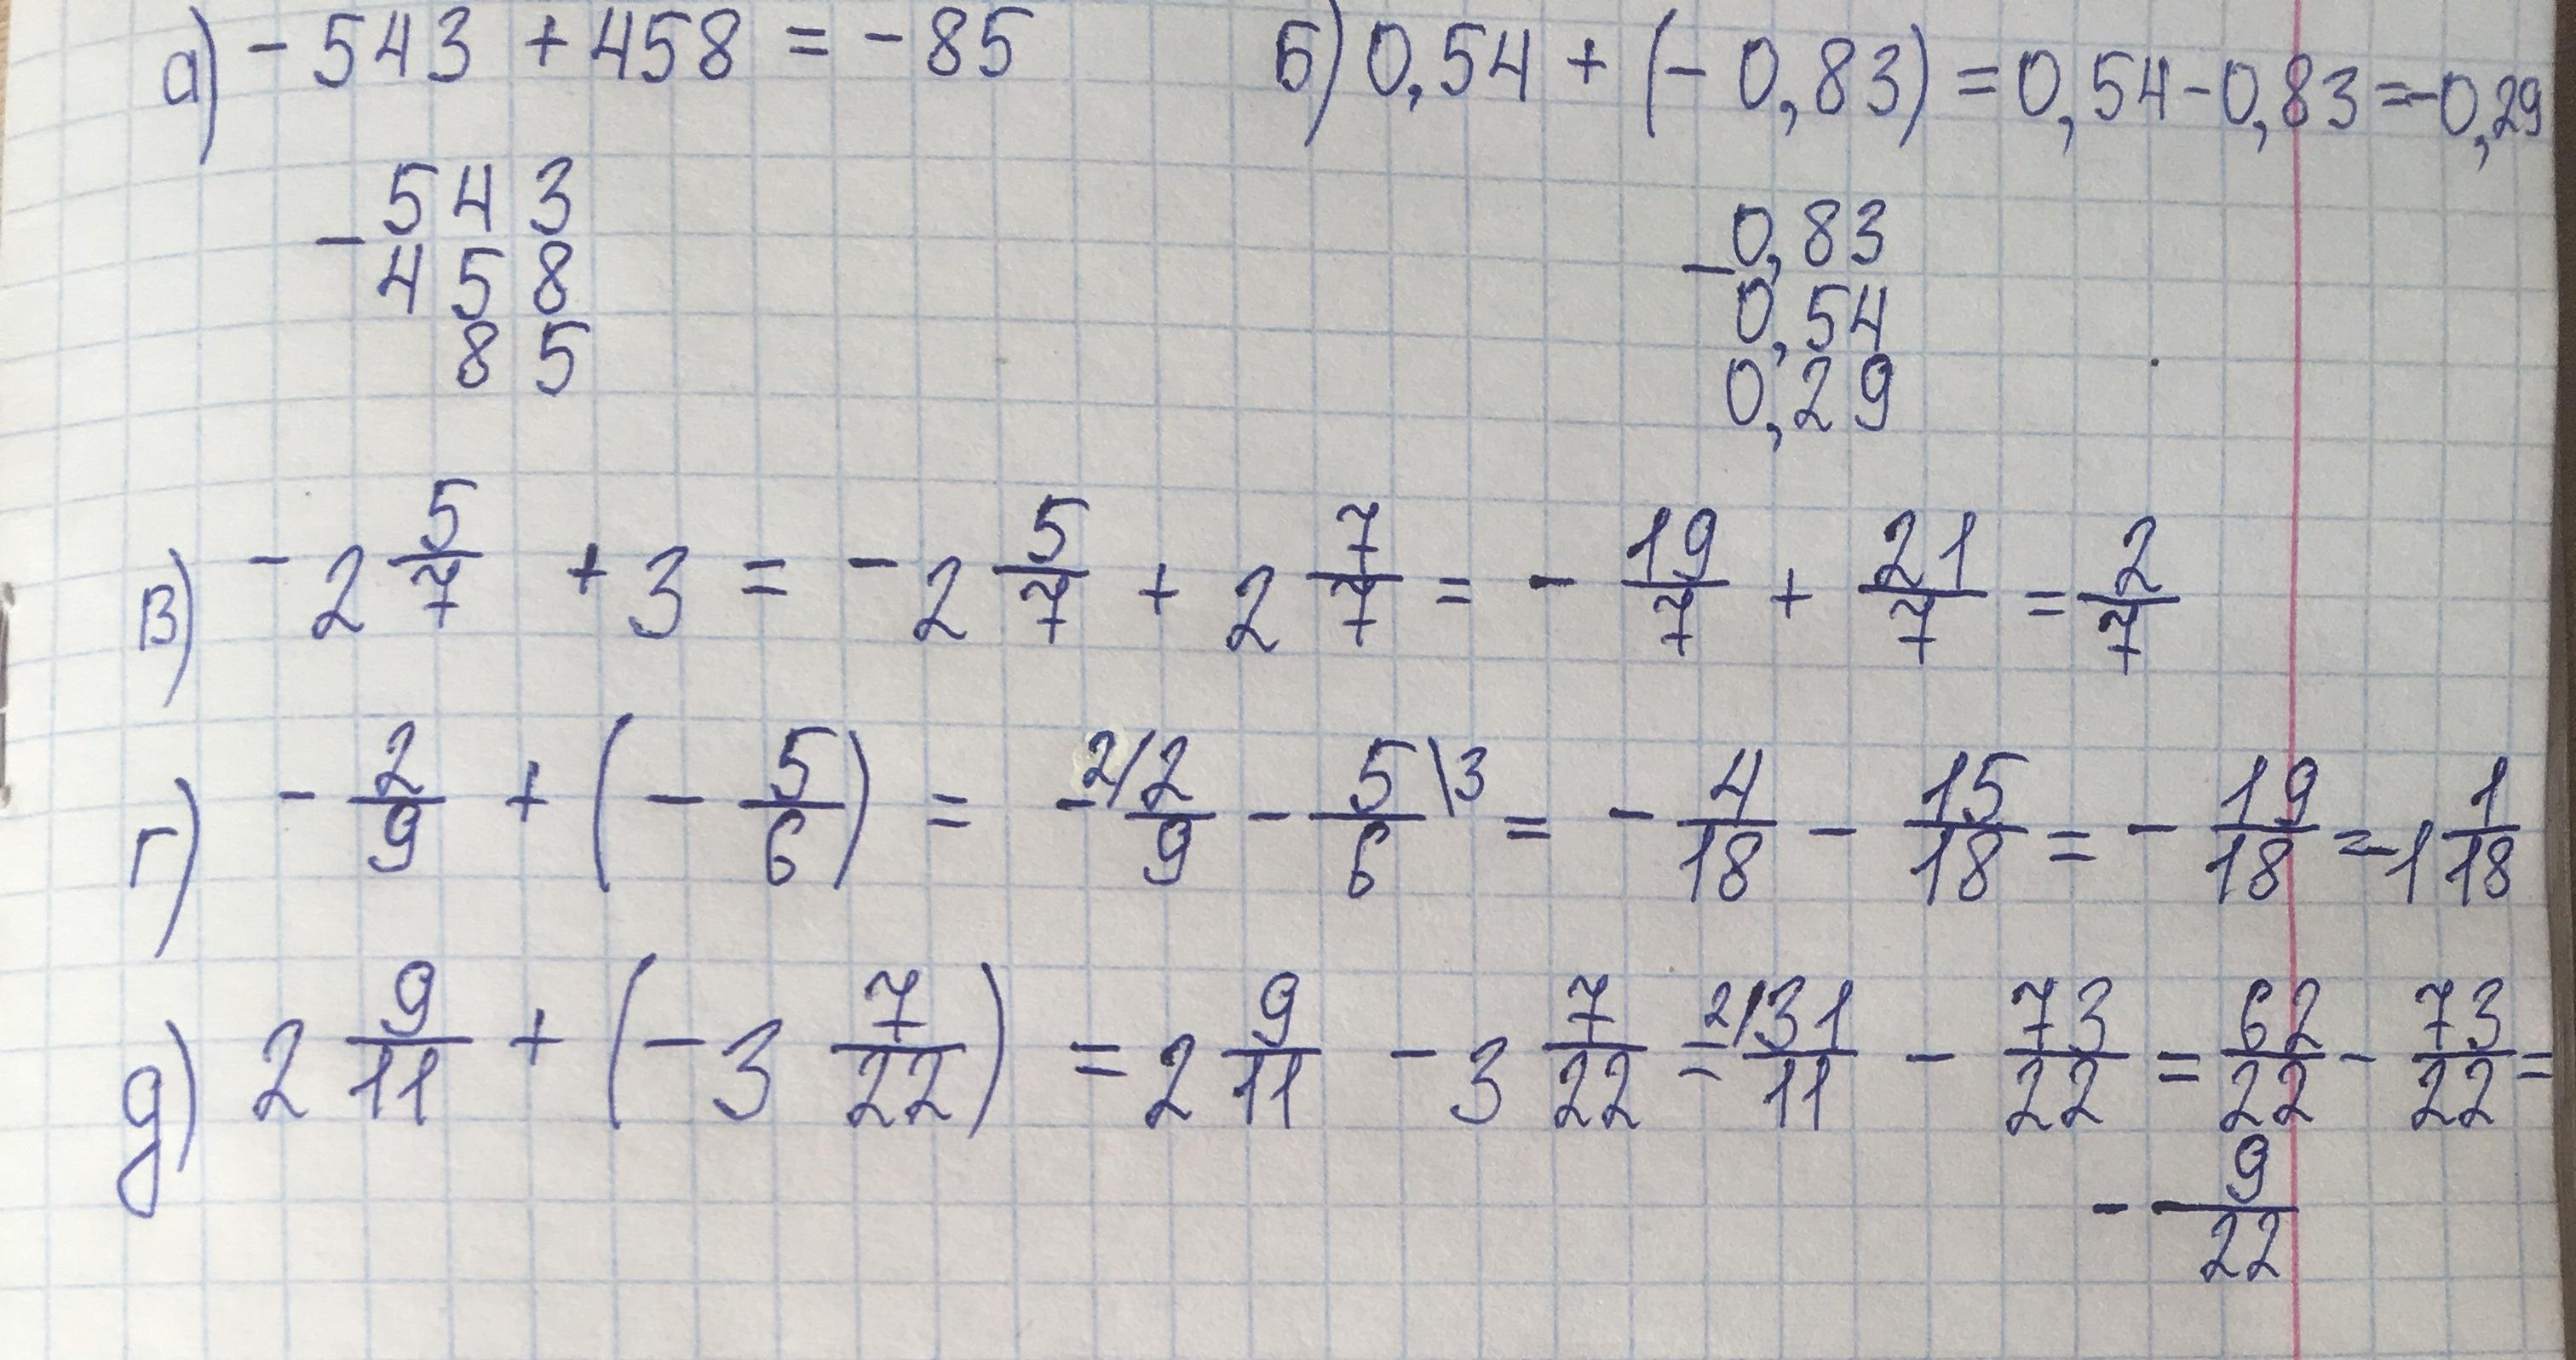 а) -543 + 458 = -85
б) 0,54 + (-0,83) = 0,54 - 0,83 = -0,29
- 543
458
85
- 0,83
0,54
0,29
в) -2 5/7 + 3 = -2 5/7 + 2 7/7 = - 19/7 + 21/7 = 2/7
г) - 2/9 + (- 5/6) = - 2/ 2/9 - 5/6 \3 = - 4/18 - 15/18 = - 19/18 = -1 1/18
д) 2 9/11 + (-3 7/22) = 2 9/11 - 3 7/22 = 2/ 31/11 - 73/22 = 62/22 - 73/22 =
- 9/22